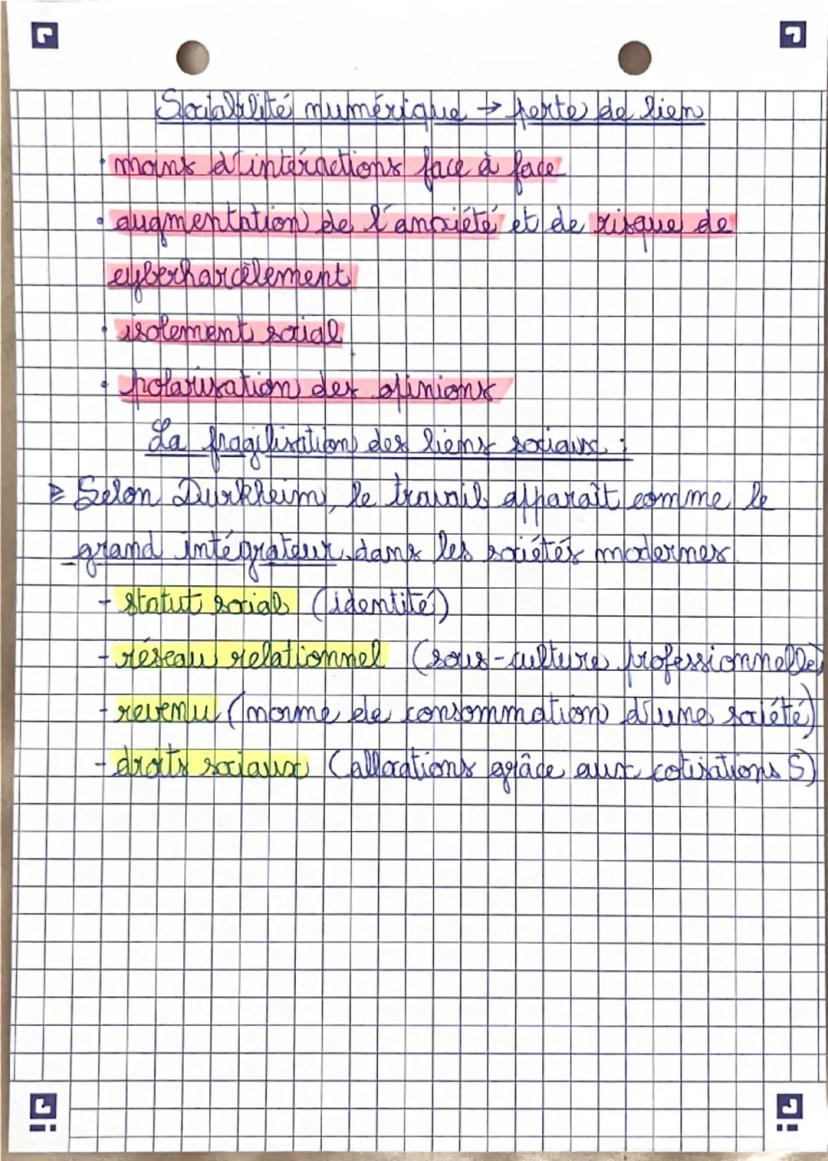 Sociabilité numérique → perte de lien
• moins d'intéractions face à face
• augmentation de l'anxiété et de risque de
cyberharcèlement
• isolement social
• polarisation des opinions
La fragilisation des liens sociaux :
Selon Durkheim, le travail apparaît comme le
grand intégrateur dans les sociétés modernes.
- statut social (identité)
- réseau relationnel (sous-culture professionnelle)
- revenu (norme de consommation d'une société)
- droits sociaux (allocations grâce aux cotisations S)